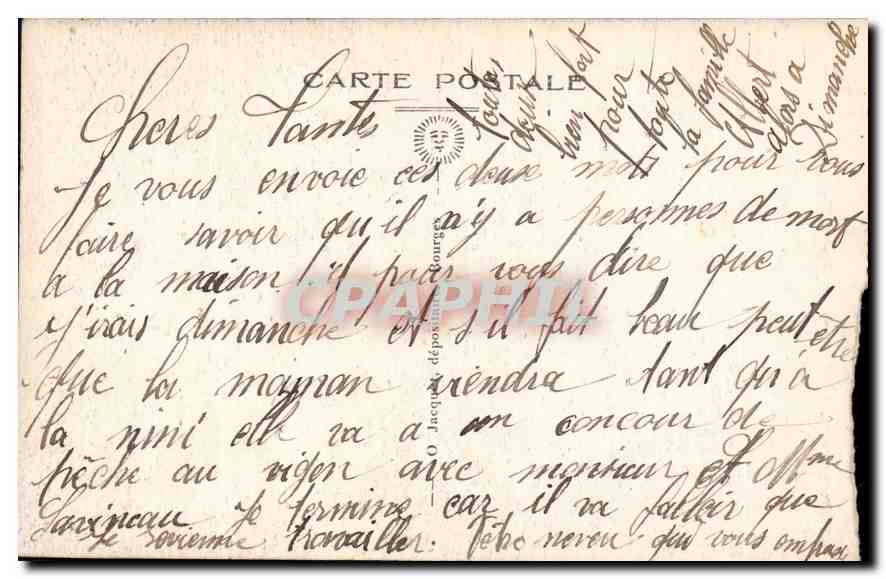 CARTE POSTALE
Cheres Tantes
Je vous envoie ces deuse mots pour vous
faire savoir qu'il n'y a personnes de mort
a la maison il pour vous dire que
j'irais dimanche et s'il fait beau peut être
que la maman viendra tant qu'à
la nini elle va a un concour de
pêche au vigen avec monsieur et Mme
Lavineau je termine car il va falloir que
je revienne travailler. Vôtre neveu qui vous embrasse
toutes
deux
bien fort
pour
toute
la famille
Albert
alors a
Dimanche
O Jacques, dépositaire, Bourges
CPAPHIL